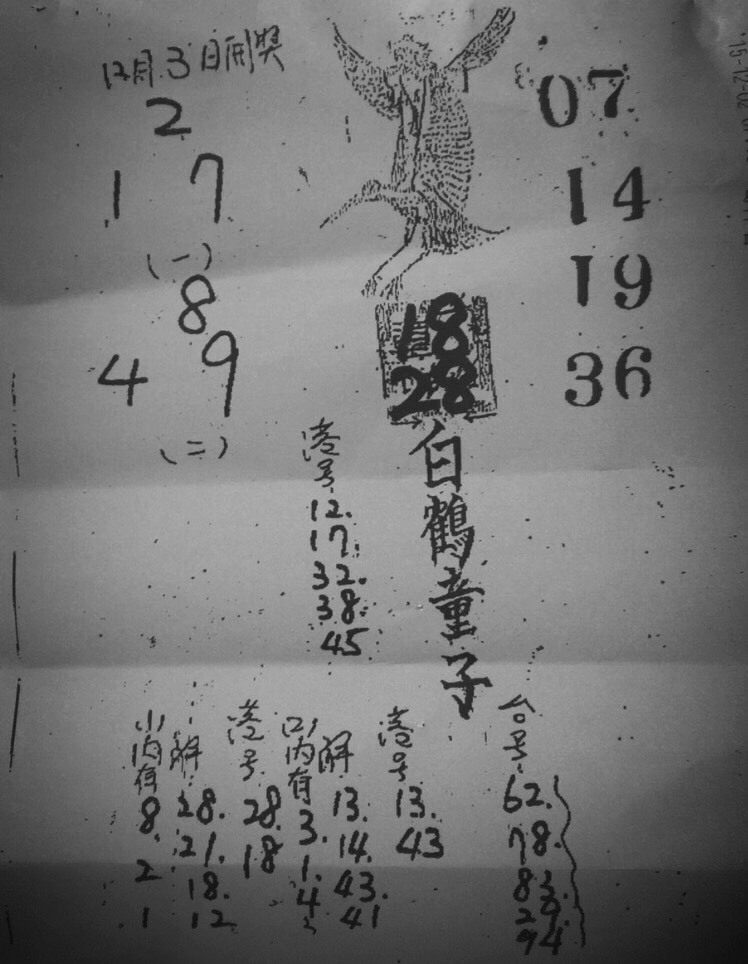 12月3日開獎
2
1 7
(一)
8
4 9
(二)
07
14
19
36
18
28
白鶴童子
港号
12.
17.
32.
38.
45
(1)内有
8.
2
1
解
28.
21.
18.
12
港号
28.
18
(2)内有
3.
1.
4
解
13.
14.
43.
41
港号
13.
43
台号
62.
78.
83.
29.
94